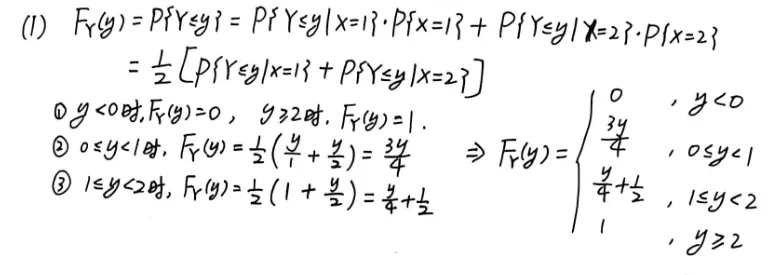 (1) F_Y(y) = P{Y≤y} = P{Y≤y|X=1}·P{X=1} + P{Y≤y|X=2}·P{X=2}
= 1/2 [P{Y≤y|X=1} + P{Y≤y|X=2}]
① y<0时, F_Y(y)=0 , y≥2时, F_Y(y)=1.
② 0≤y<1时, F_Y(y)=1/2(y/1 + y/2) = 3y/4
③ 1≤y<2时, F_Y(y)=1/2(1 + y/2) = y/4 + 1/2
⇒ F_Y(y) = { 0 , y<0
3y/4 , 0≤y<1
y/4 + 1/2 , 1≤y<2
1 , y≥2